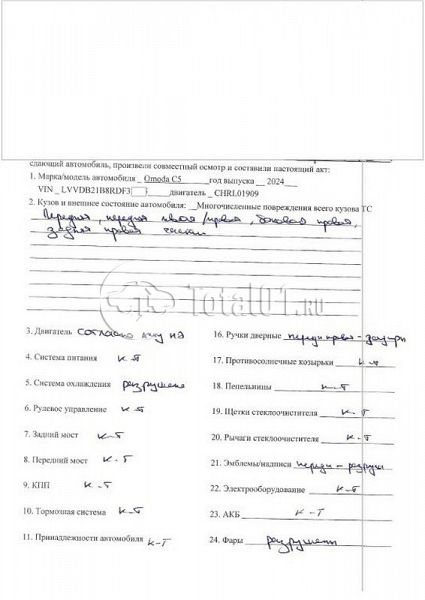 сдающий автомобиль, произвели совместный осмотр и составили настоящий акт:
1. Марка/модель автомобиля _ Omoda C5 год выпуска __ 2024
VIN _ LVVDB21B8RDF3 двигатель _ CHRL01909
2. Кузов и внешнее состояние автомобиля: _Многочисленные повреждения всего кузова ТС
Передняя, передняя левая/правая, боковая правая,
задняя правая части
Total01.ru
3. Двигатель согласно акту НЭ
4. Система питания к-т
5. Система охлаждения разрушена
6. Рулевое управление к-т
7. Задний мост к-т
8. Передний мост к-т
9. КПП к-т
10. Тормозная система к-т
11. Принадлежности автомобиля к-т
16. Ручки дверные передн права - задиры
17. Противосолнечные козырьки к-т
18. Пепельницы к-т
19. Щетки стеклоочистителя к-т
20. Рычаги стеклоочистителя к-т
21. Эмблемы/надписи передн - разруш
22. Электрооборудование к-т
23. АКБ к-т
24. Фары разрушены